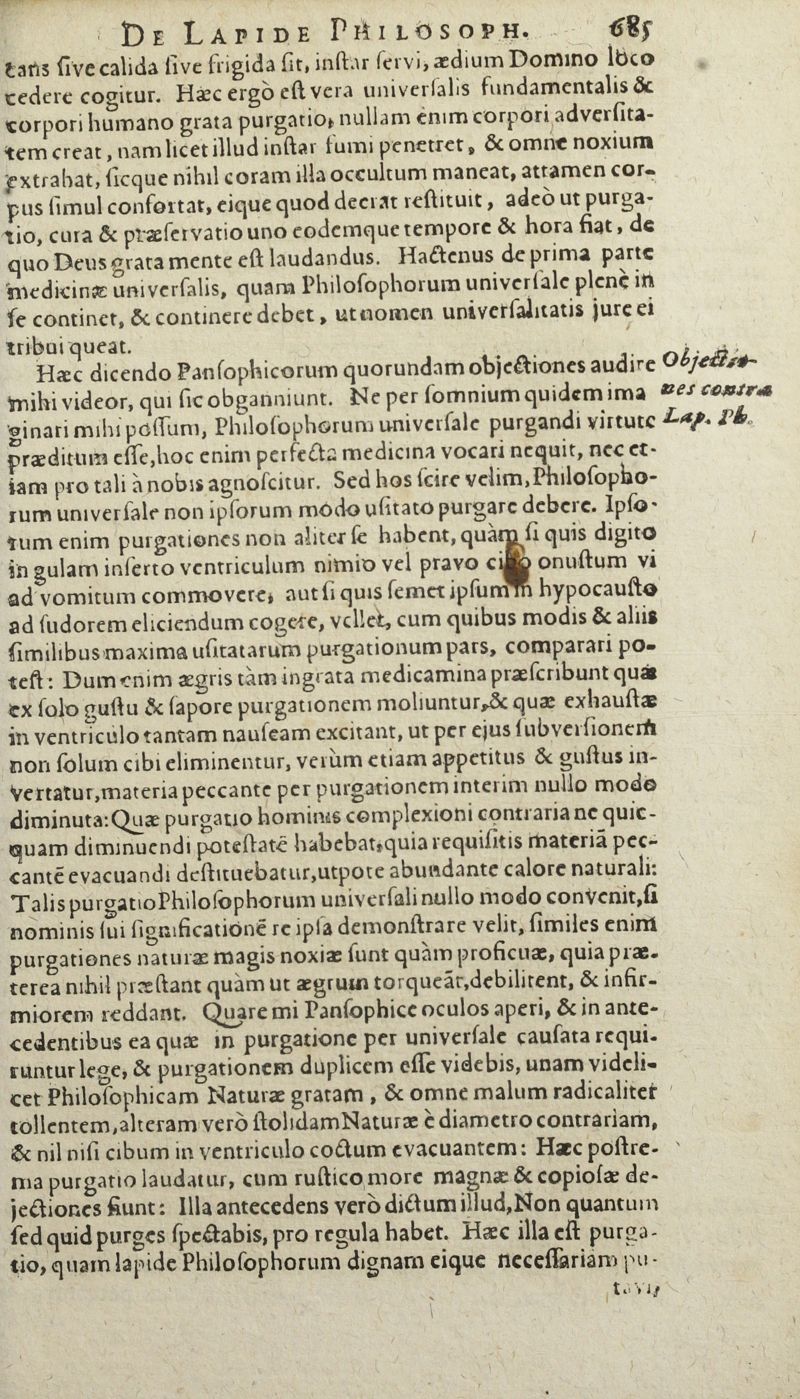 DE LAPIDE PHILOSOPH. 685
taris ſive calida ſive frigida ſit, inſtar ſervi, ædium Domino loco
cedere cogitur. Hæc ergò eſt vera univerſalis fundamentalis &
corpori humano grata purgatio, nullam enim corpori adverſita-
tem creat, nam licet illud inſtar fumi penetret, & omne noxium
extrahat, ſicque nihil coram illa occultum maneat, attamen cor-
pus ſimul confortat, eique quod deerat reſtituit, adeò ut purga-
tio, cura & præſervatio uno eodemque tempore & hora fiat, de
quo Deus grata mente eſt laudandus. Hactenus de prima parte
medicinæ univerſalis, quam Philoſophorum univerſale plenè in
ſe continet, & continere debet, ut nomen univerſalitatis jure ei
tribui queat.
Hæc dicendo Panſophicorum quorundam objectiones audire
Objectio-
mihi videor, qui ſic obganniunt. Ne per ſomnium quidem ima
nes contra
ginari mihi poſſum, Philoſophorum univerſale purgandi virtute
Lap. Ph.
præditum eſſe, hoc enim perfecta medicina vocari nequit, nec et-
iam pro tali à nobis agnoſcitur. Sed hos ſcire velim, Philoſopho-
rum univerſale non ipſorum modo uſitato purgare debere. Ipſo-
rum enim purgationes non aliter ſe habent, quàm ſi quis digito
in gulam inſerto ventriculum nimio vel pravo cibo onuſtum vi
ad vomitum commovere, aut ſi quis ſemet ipſum in hypocauſto
ad ſudorem eliciendum cogere, vellet, cum quibus modis & aliis
ſimilibus maxima uſitatarum purgationum pars, comparari po-
teſt: Dum enim ægris tàm ingrata medicamina præſcribunt quæ
ex ſolo guſtu & ſapore purgationem moliuntur, & quæ exhauſtæ
in ventriculo tantam nauſeam excitant, ut per ejus ſubverſionem
non ſolum cibi eliminentur, verùm etiam appetitus & guſtus in-
vertatur, materia peccante per purgationem interim nullo modo
diminuta: Quæ purgatio hominis complexioni contraria ne quic-
quam diminuendi poteſtatē habebat, quia requiſitis materiā pec-
cantē evacuandi deſtituebatur, utpote abundante calore naturali:
Talis purgatio Philoſophorum univerſali nullo modo convenit, ſi
nominis ſui ſignificationē re ipſa demonſtrare velit, ſimiles enim
purgationes naturæ magis noxiæ ſunt quàm proficuæ, quia præ-
terea nihil præſtant quàm ut ægrum torqueāt, debilitent, & infir-
miorem reddant. Quare mi Panſophice oculos aperi, & in ante-
cedentibus ea quæ in purgatione per univerſale cauſata requi-
runtur lege, & purgationem duplicem eſſe videbis, unam videli-
cet Philoſophicam Naturæ gratam, & omne malum radicaliter
tollentem, alteram verò ſtolidam Naturæ è diametro contrariam,
& nil niſi cibum in ventriculo coctum evacuantem: Hæc poſtre-
ma purgatio laudatur, cum ruſtico more magnæ & copioſæ de-
jectiones fiunt: Illa antecedens verò dictum illud, Non quantum
ſed quid purges ſpectabis, pro regula habet. Hæc illa eſt purga-
tio, quam lapide Philoſophorum dignam eique neceſſariam pu-